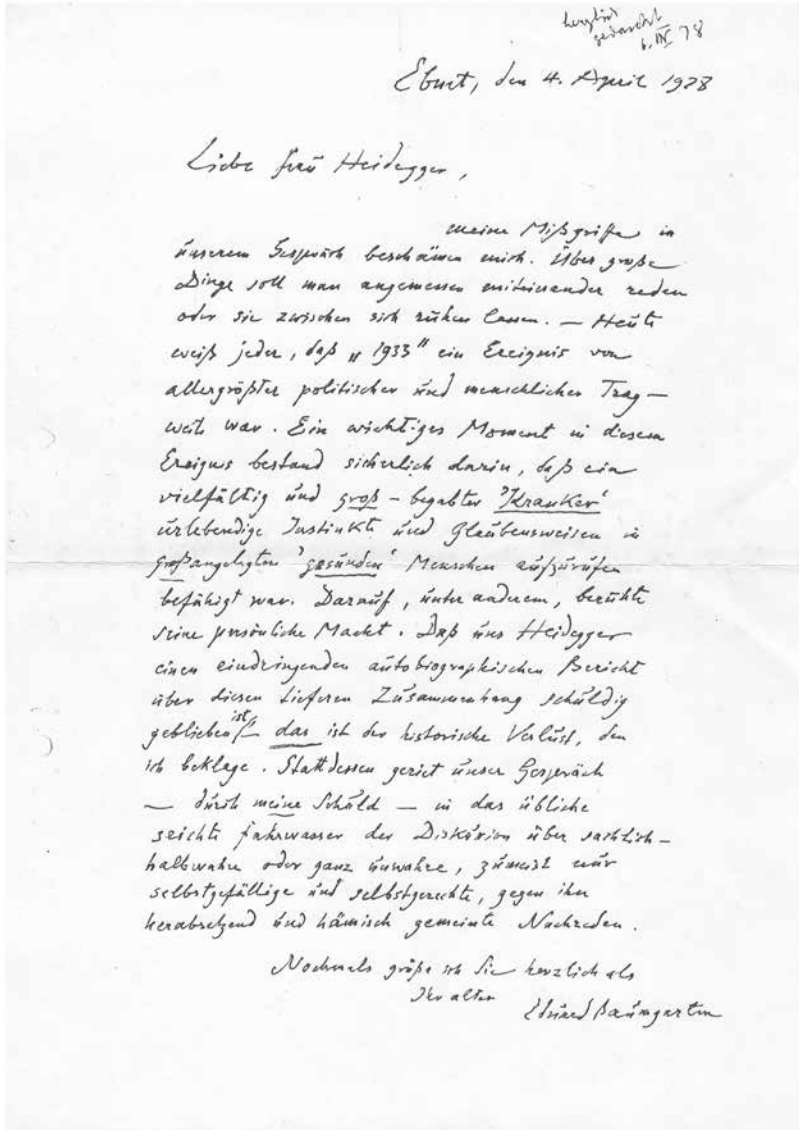 herzlich
gedankt
6. IV 78
Ebnet, den 4. April 1978
Liebe Frau Heidegger,
meine Mißgriffe in
unserem Gespräch beschämen mich. Über große
Dinge soll man angemessen miteinander reden
oder sie zwischen sich ruhen lassen. — Heute
weiß jeder, daß „1933“ ein Ereignis von
allergrößter politischer und menschlicher Trag-
weite war. Ein wichtiges Moment in diesem
Ereignis bestand sicherlich darin, daß ein
vielfältig und groß-begabter 'Kranker'
urlebendige Instinkte und Glaubensweisen in
großangelegten 'gesunden' Menschen aufzurufen
befähigt war. Darauf, unter anderem, beruhte
seine persönliche Macht. Daß uns Heidegger
einen eindringenden autobiographischen Bericht
über diesen tieferen Zusammenhang schuldig
geblieben ist — das ist der historische Verlust, den
ich beklage. Stattdessen geriet unser Gespräch
— durch meine Schuld — in das übliche
seichte Fahrwasser der Diskussion über sachlich-
halbwahre oder ganz unwahre, zumeist nur
selbstgefällige und selbstgerechte, gegen ihn
herabsetzend und hämisch gemeinte Nachreden.
Nochmals grüße ich Sie herzlich als
Ihr alter
Eduard Baumgarten